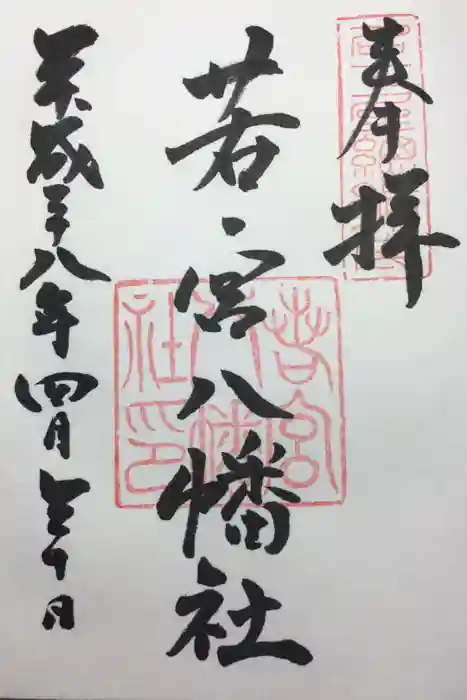 奉拝
若宮八幡社
若宮
八幡
社印
平成二十八年四月三十日